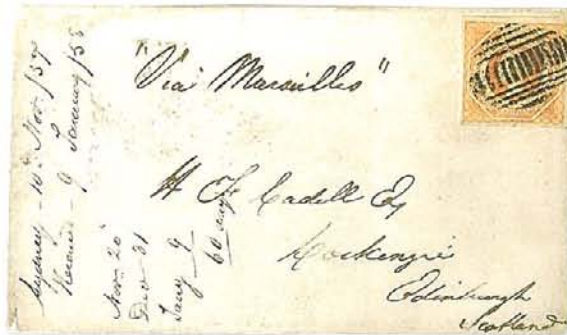 "Via Marseilles"
H F Cadell Esq
Cockenzie
Edinburgh
Scotland
Sydney - 10th Nov /57
Received - 9 January /58
Nov 20
Dec 31
Jany 9
60 days